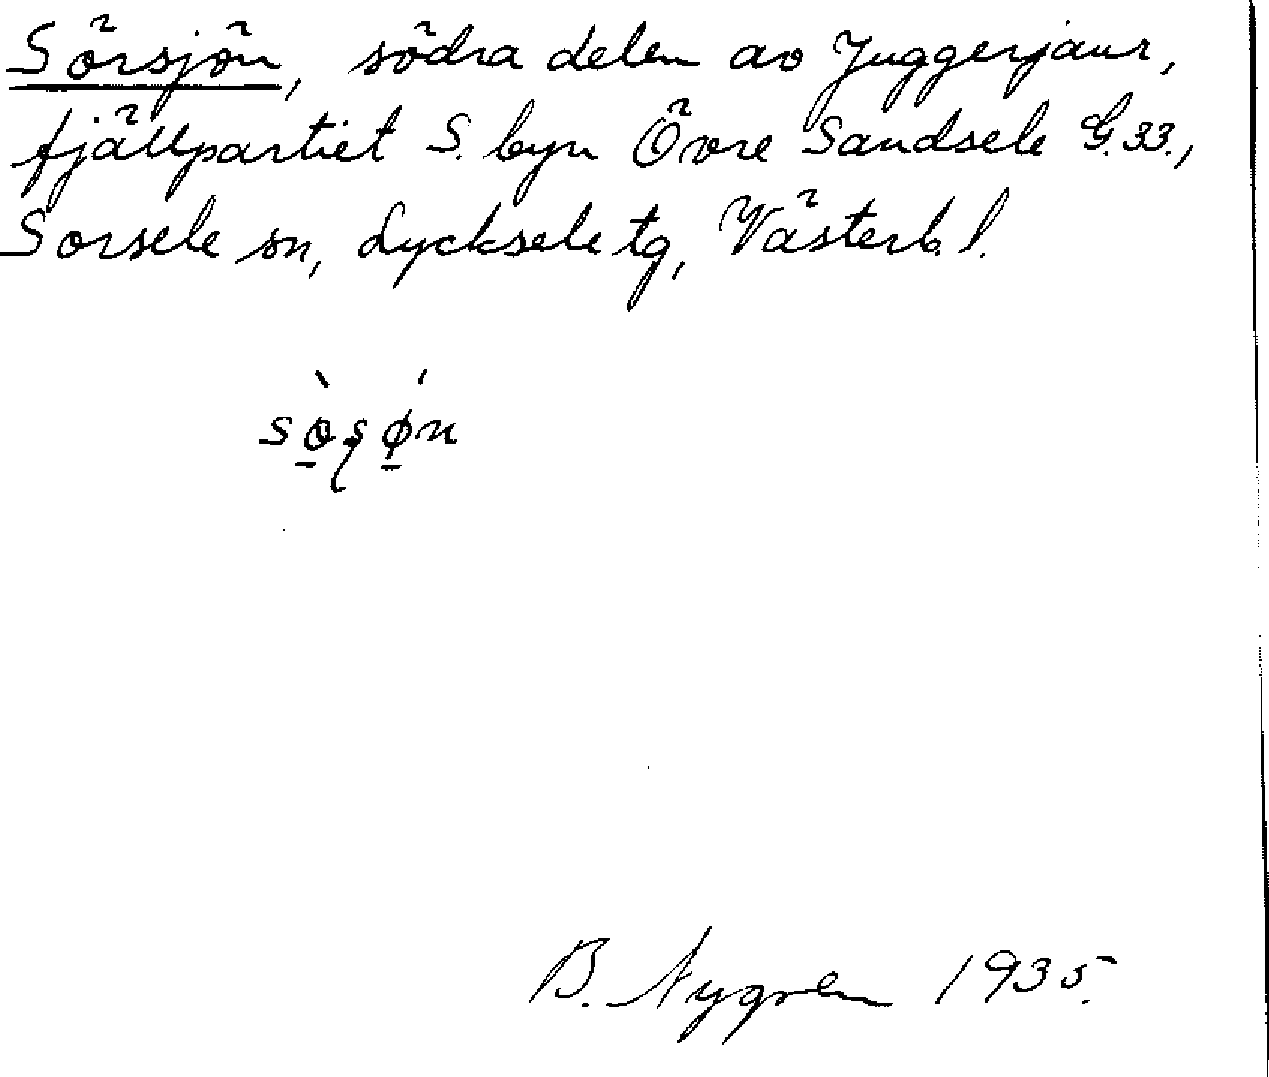 Sörsjön, södra delen av Juggerjaur,
fjällpartiet S. byn Övre Sandsele G.33.,
Sorsele sn, Lycksele tg, Västerb. l.
B. Nygren 1935.